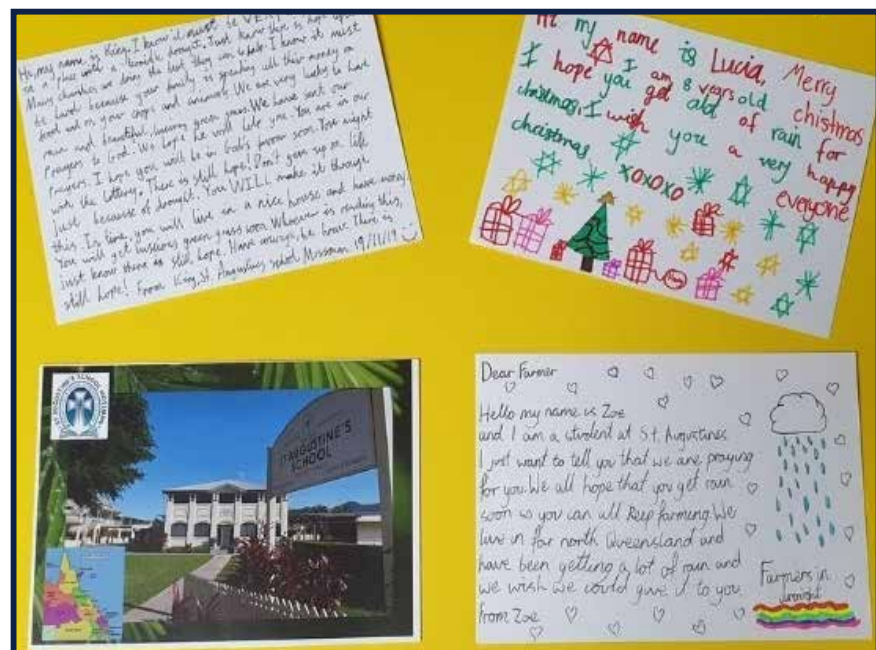 Hi, my name is King. I know it must be VERY
a place with a terrible drought. Just know there is hope
Many churches are doing the best they can to help. I know it must
be hard because your family is spending all their money on
food and on your crops and animals. We are very lucky to have
rain and beautiful, luscious green grass. We have sent our
Prayers to God. We hope he will help you. You are in our
Prayers. I hope you will be in God's favour soon. You might
win the lottery. There is still hope! Don't give up on life
just because of drought. You WILL make it through
this. In time, you will live in a nice house and have money.
You will get luscious green grass soon. Whoever is reading this,
just know there is still hope. Have courage, be brave. There is
still hope! From King, St. Augustines school Mossman 19/11/19
Hi my name is Lucia, Merry
I am 8 years old chistmas
I hope you get alot of rain for
christmas, I wish you a very happy
christmas xoxoxo everyone
ST AUGUSTINE'S SCHOOL MOSSMAN
ST AUGUSTINE'S
SCHOOL
Dear Farmer
Hello my name is Zoe
and I am a student at St. Augustines
I just want to tell you that we are praying
for you. We all hope that you get rain
soon so you can all keep farming. We
live in far north Queensland and
have been getting a lot of rain and
we wish we could give it to you
from Zoe
Farmers in
drought